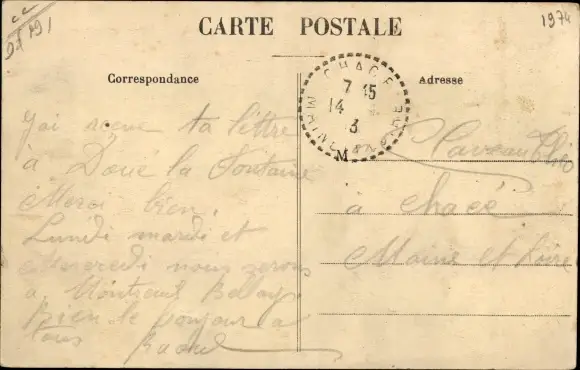 1974
CARTE POSTALE
Correspondance
Adresse
CHACÉ
7 15
14
3
MAINE ET LOIRE
M
J'ai reçue ta lettre
à Doué la Fontaine
Merci bien.
Lundi mardi et
Mercredi nous serons
a Montreuil Bellay
Bien le bonjour a
tous
Raoul
à Chacé
Maine et Loire